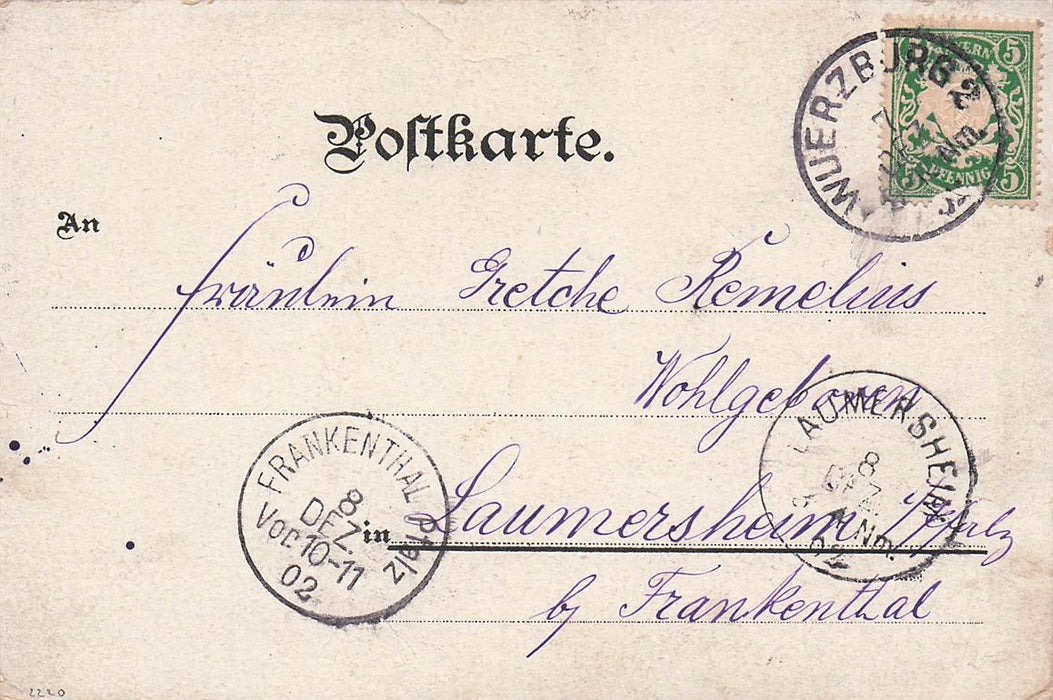 Postkarte.
BAYERN
5 5
5 PFENNIG 5
WUERZBURG 2
Nm.
An
Fräulein Gretche Remelius
Wohlgeboren
LAUMERSHEIM
8
DEZ.
Nm.
02
FRANKENTHAL
8
DEZ.
Vor 10-11
02
in
Laumersheim /Pfalz
b/ Frankenthal
2220